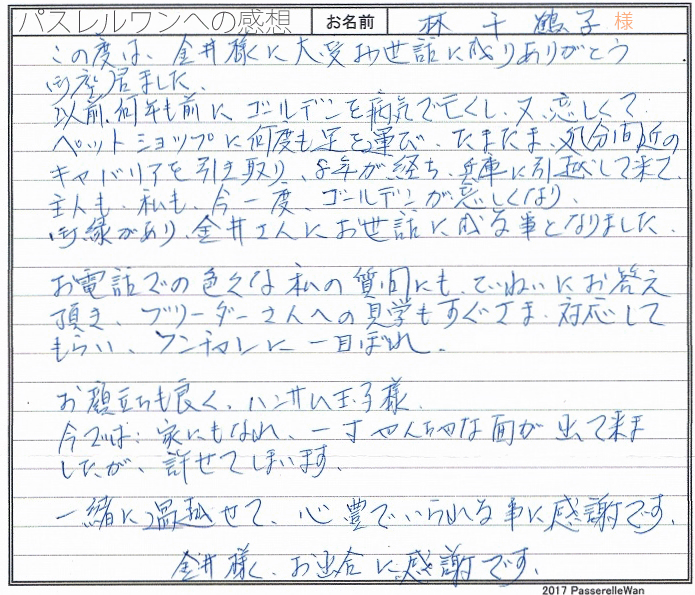 パスレルワンへの感想 お名前 林 千鶴子 様
この度は、金井様に大変お世話に成りありがとう
御座居ました。
以前、何年も前に ゴールデンを病気で亡くし、又、恋しくて、
ペットショップに何度も足を運び、たまたま、処分間近の
キャバリアを引き取り、8年が、経ち、兵庫に引越しして来て、
主人も、私も、今一度、ゴールデンが恋しくなり、
御縁があり、金井さんにお世話に成る事となりました。
お電話での色々な私の質問にも、ていねいにお答え
頂き、ブリーダーさんへの見学もすぐさま、対応して
もらい、ワンチャンに一目ぼれ。
お顔立ちも良く、ハンサム王子様。
今では、家にもなれ、一寸やんちゃな面が出て来ま
したが、許せてしまいます。
一緒に過せて、心豊でいられる事に感謝です。
金井様、お出合に感謝です。
2017 PasserelleWan